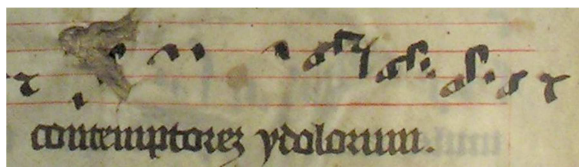 contemptorez ydolorum.